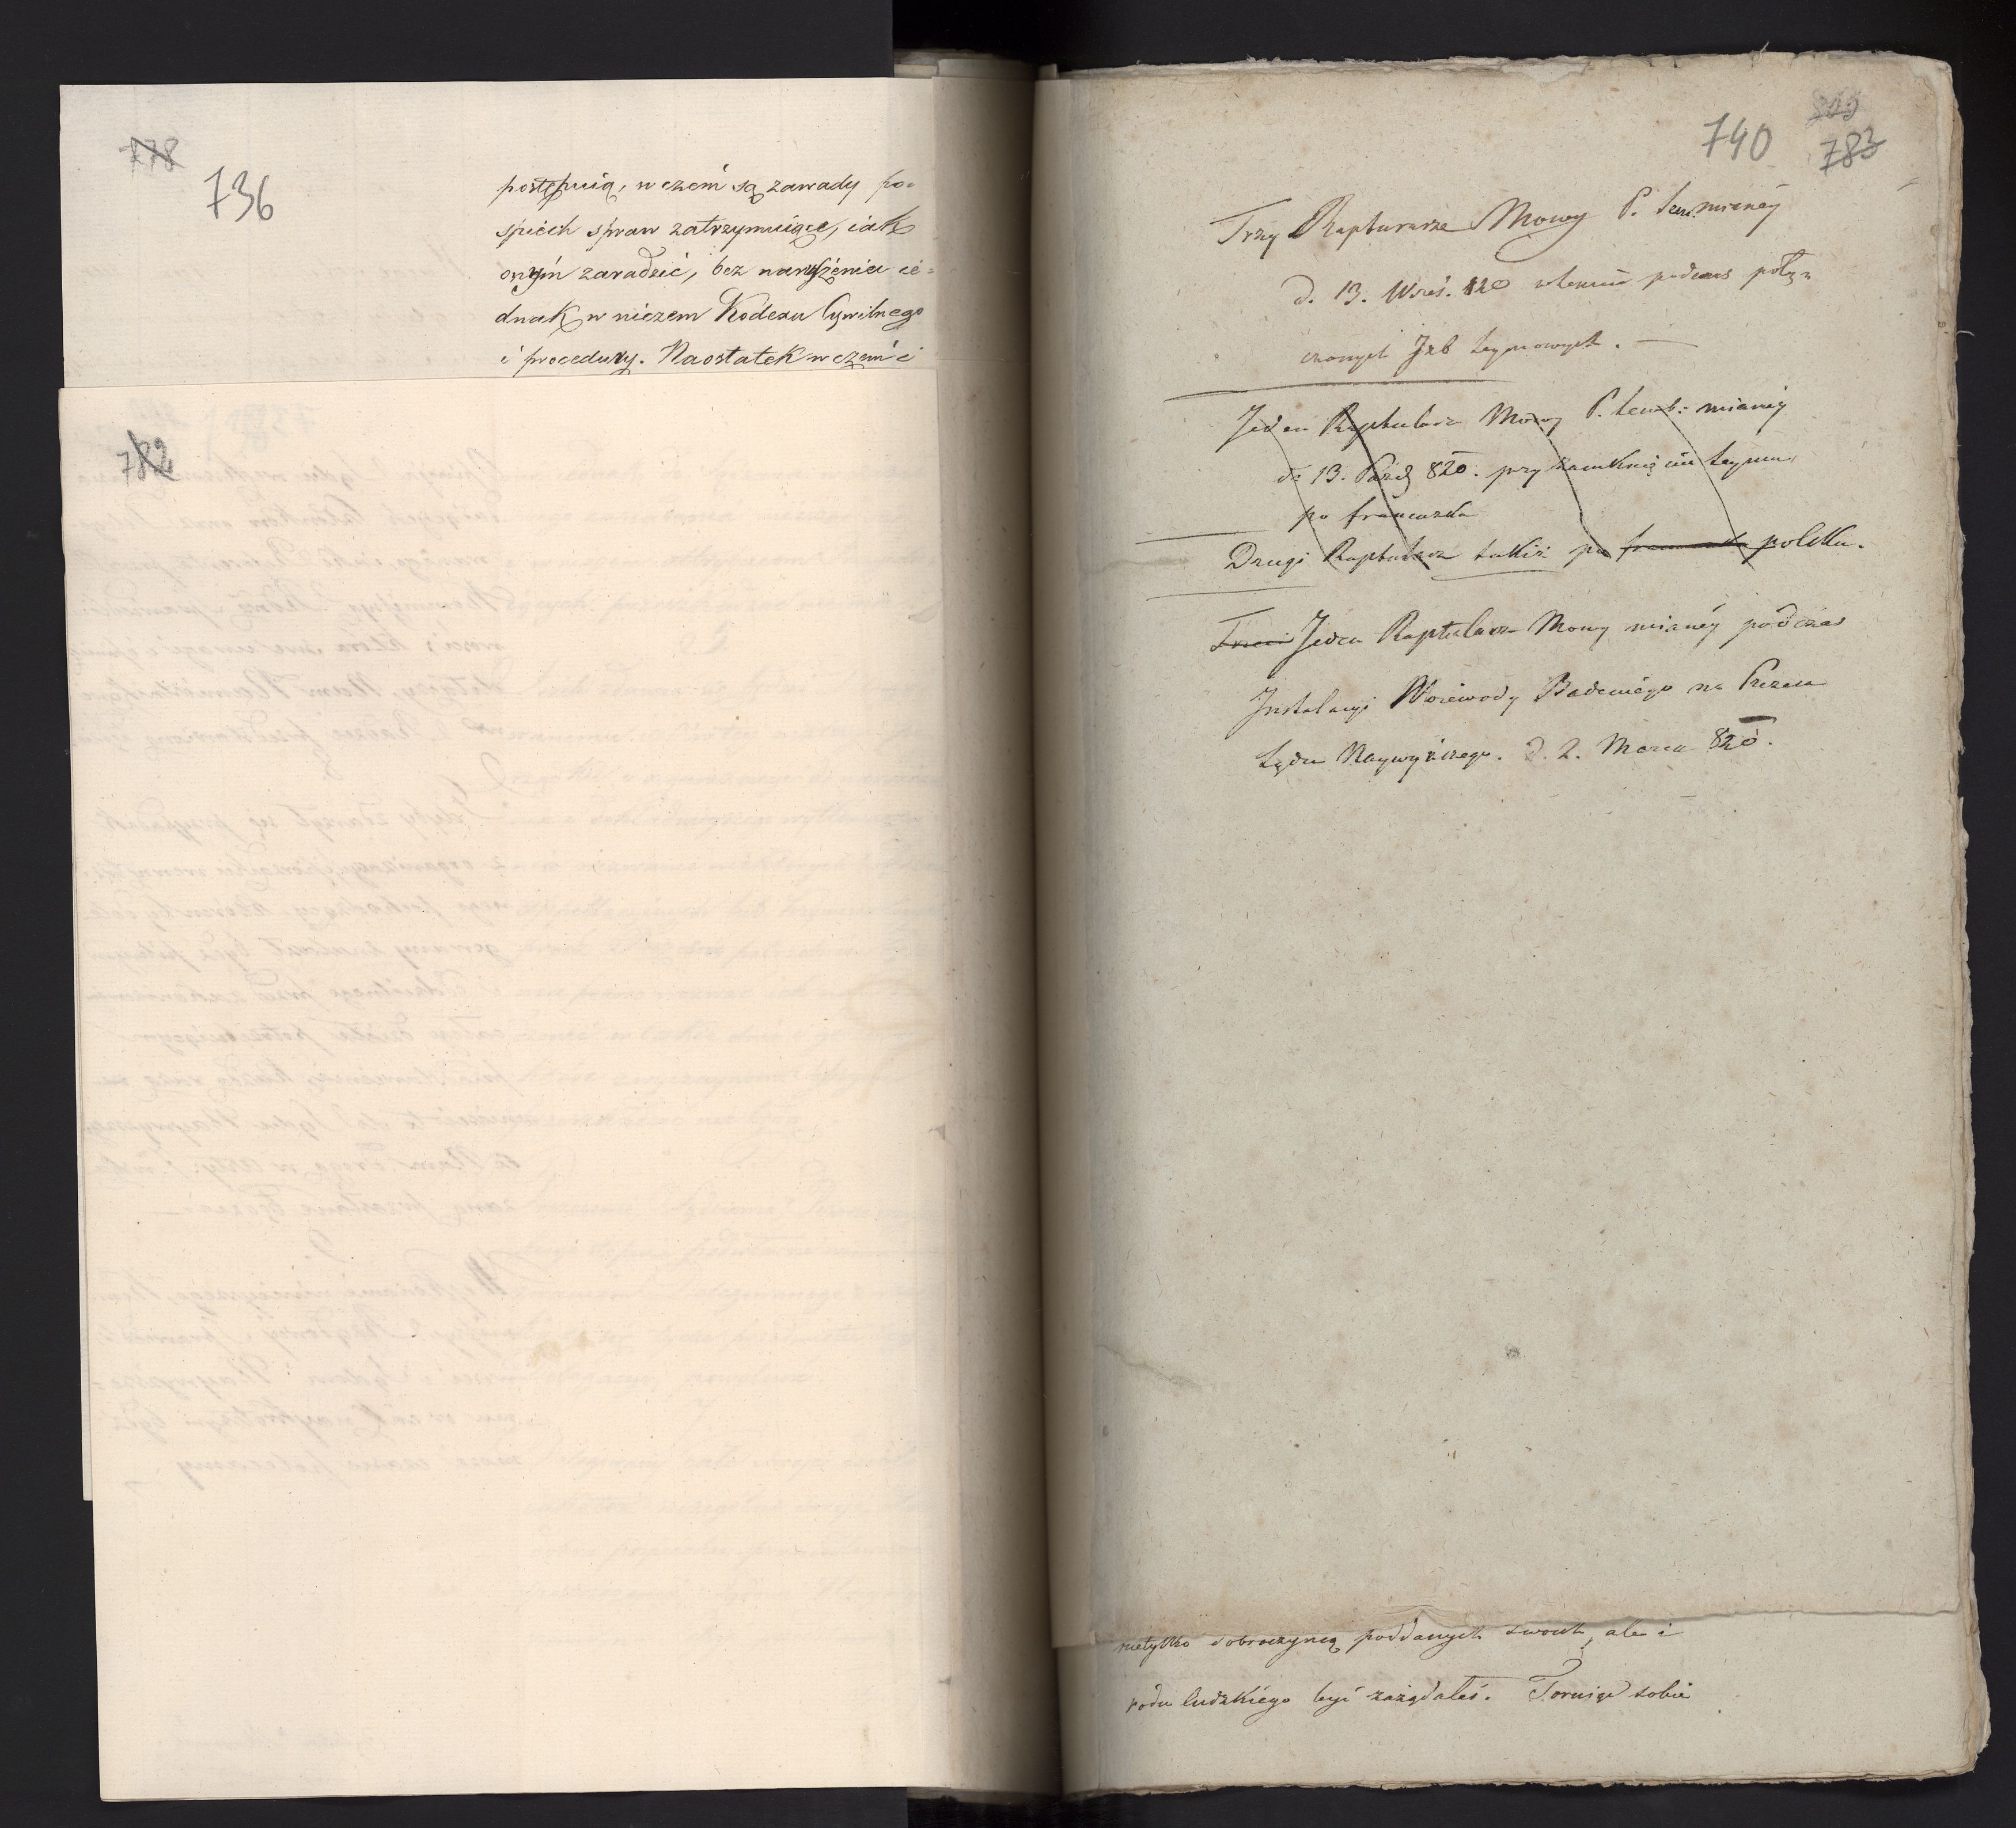 778
736
postępuią, w czem są zawady po=
spiech spraw zatrzymuiące, iak
onym zaradzić, bez naruszenia ie=
dnak w niczem Kodexu Cywilnego
i procedury. Naostatek w czem i
782
740
783
Trzy Rapturarze Mowy P. Sen. mianéy
d. 13. Wrześ. 820 podczas połą=
czonych Izb Seymowych. —
Jeden Raptularz Mowy P. Senat: mianéy
d: 13. Paźdz 820. przy zamknięciu Seymu
po francuzku
Drugi Raptularz takiż po polsku.
Trzeci Jeden Raptularz Mowy mianéy podczas
Instalacyi Woiewody Badeniego na Prezesa
Sądu Naywyższego. d. 2. Marca 820.
nietylko dobroczyńcą poddanych swoich, ale i
rodu ludzkiego byi zażądałeś. sobie